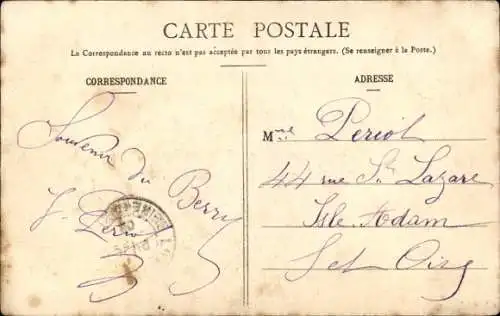 CARTE POSTALE
La Correspondance au recto n'est pas acceptée par tous les pays étrangers. (Se renseigner à la Poste.)
CORRESPONDANCE
ADRESSE
Souvenir du Berry
J. Periol
Mme Periol
44 rue St Lazare
Isle Adam
Set Oise